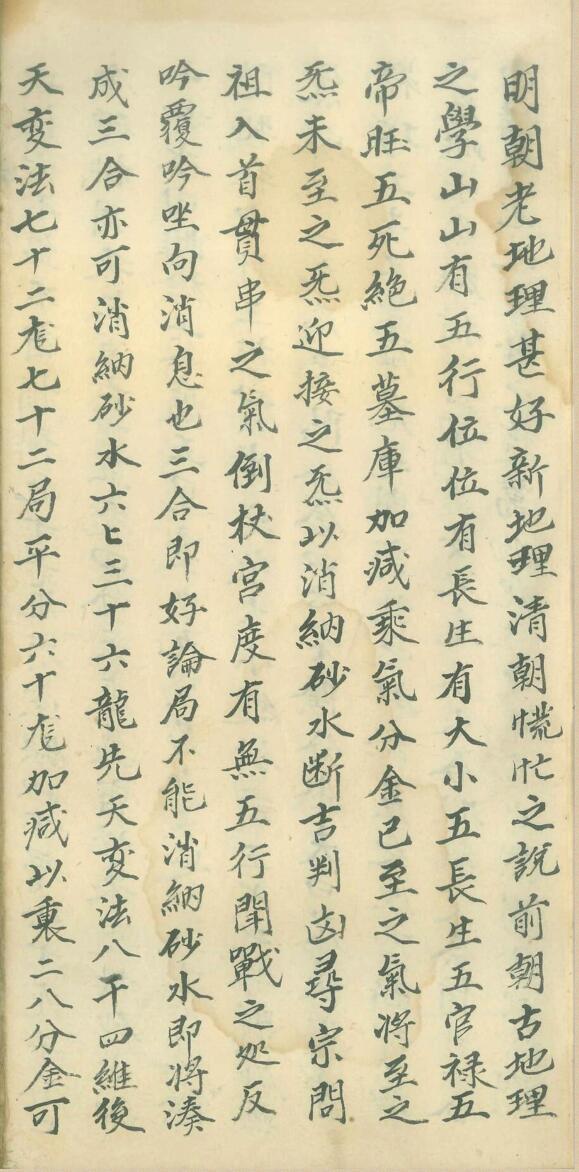 明朝老地理甚好新地理清朝慌忙之説前朝古地理
之學山山有五行位位有長生有大小五長生五官禄五
帝旺五死絶五墓庫加减乘氣分金已至之氣将至之
炁未至之炁迎接之炁以消納砂水断吉判凶尋宗問
祖入首貫串之氣倒杖宫度有無五行鬪戰之处反
吟覆吟唑向消息也三合即好論局不能消納砂水即将湊
成三合亦可消納砂水六匕三十六龍先天变法八干四維後
天变法七十二尨七十二局平分六十尨加减以裏二八分金可